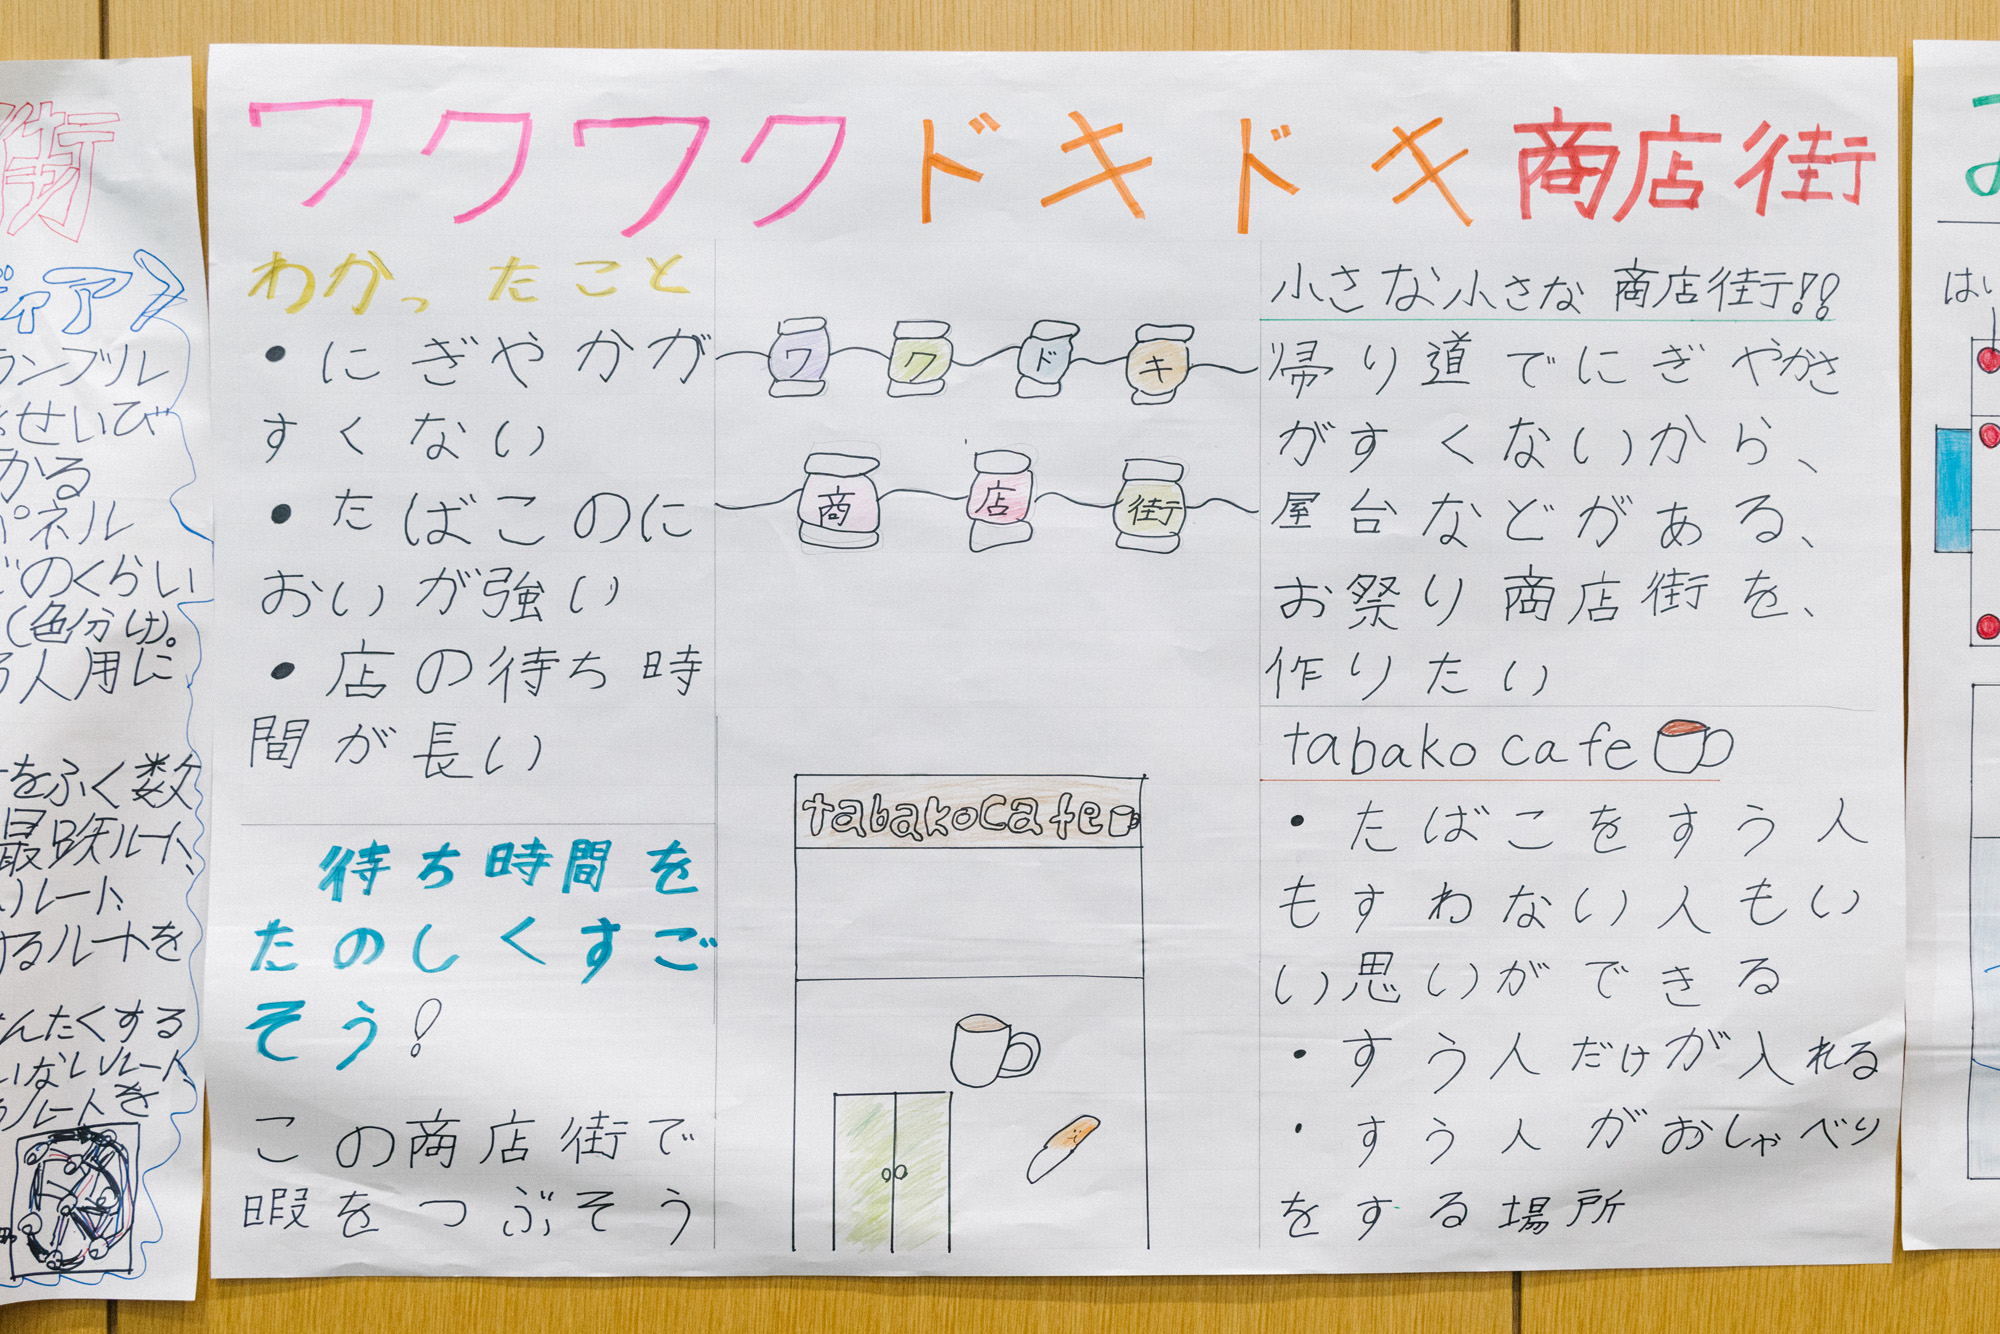 ワクワクドキドキ商店街
わかったこと
・にぎやかが
すくない
・たばこのに
おいが強い
・店の待ち時
間が長い
待ち時間を
たのしくすご
そう!
この商店街で
暇をつぶそう
ワクドキ
商店街
tabakocafe
小さな小さな商店街!!
帰り道でにぎやかさ
がすくないから、
屋台などがある、
お祭り商店街を、
作りたい
tabako cafe
・たばこをすう人
もすわない人もい
い思いができる
・すう人だけが入れる
・すう人がおしゃべり
をする場所
街
ディア
ランブル
せいび
かる
パネル
のくらい
(色分け)。
人用に
をふく数
最短ルート、
ルート
けるルートを
んたくする
いないルート
ルートを
はい